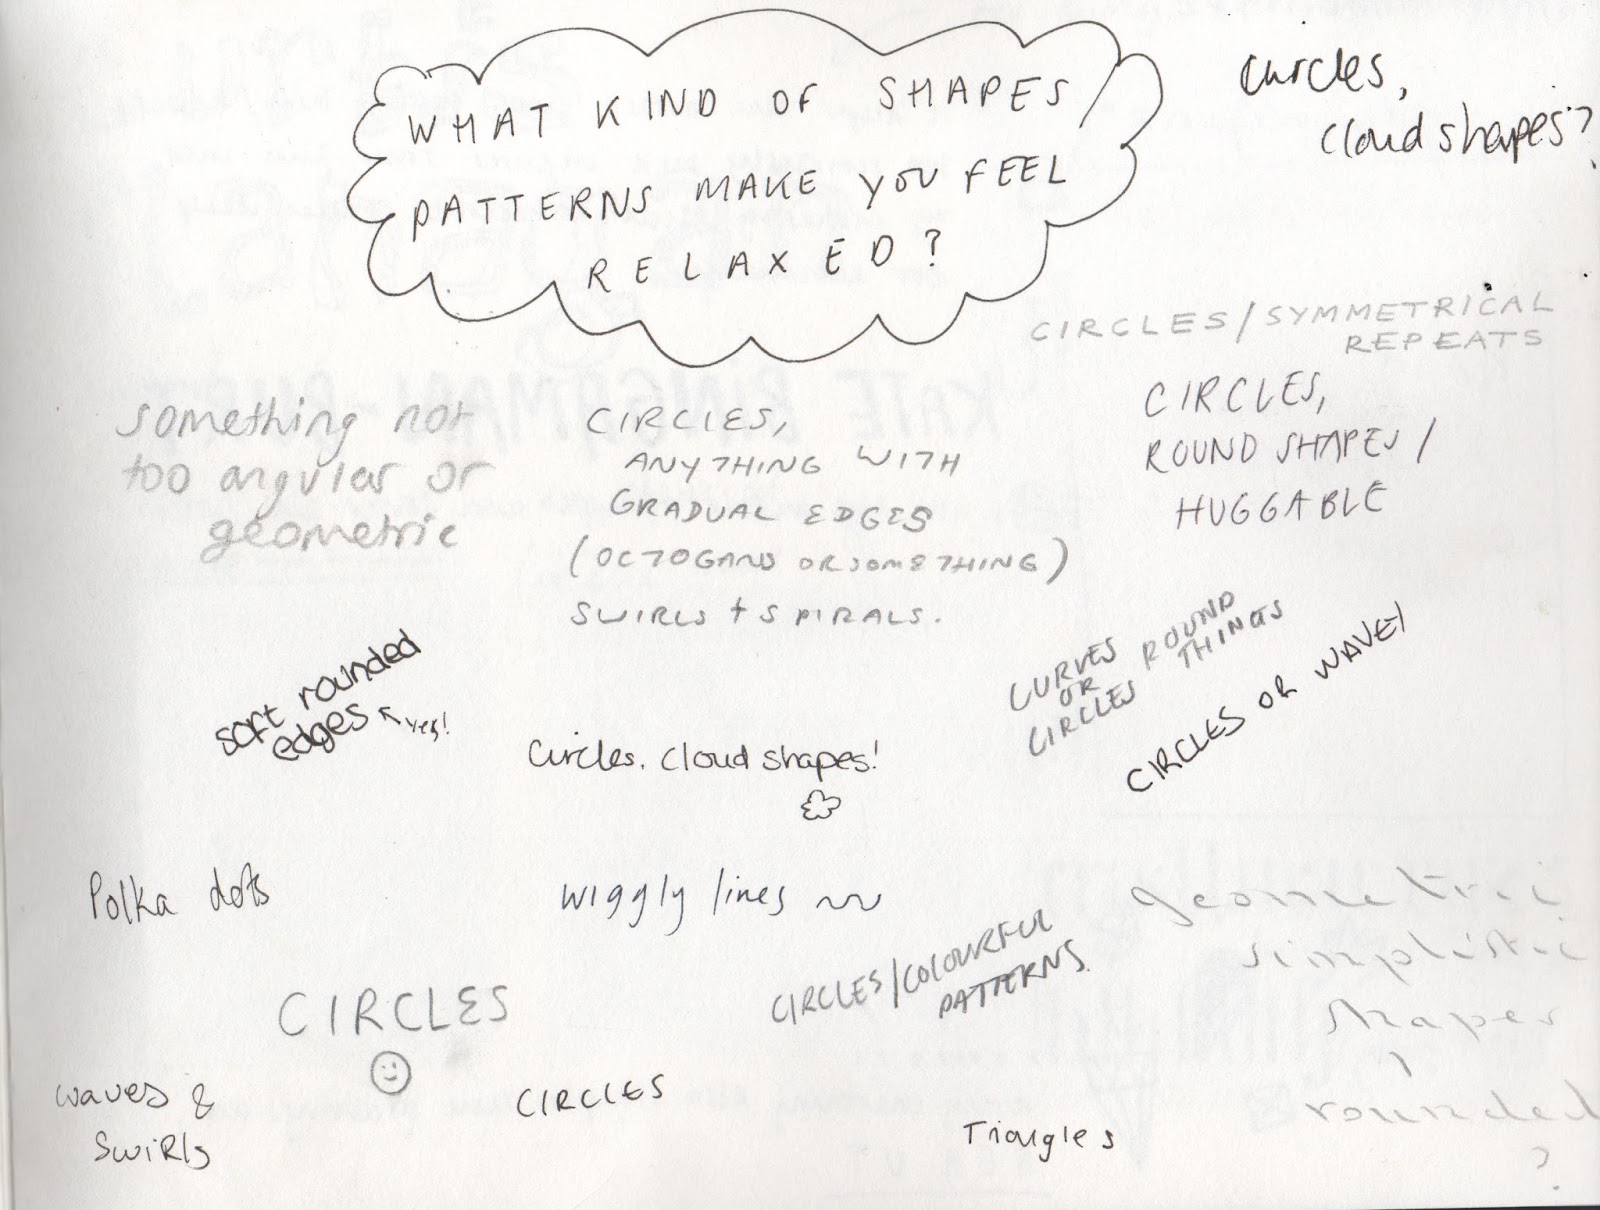 WHAT KIND OF SHAPES /
PATTERNS MAKE YOU FEEL
RELAXED?
Circles,
cloud shapes?
CIRCLES/SYMMETRICAL
REPEATS
something not
too angular or
geometric
CIRCLES,
ANYTHING WITH
GRADUAL EDGES
(OCTOGANS OR SOMETHING)
SWIRLS + SPIRALS.
CIRCLES,
ROUND SHAPES /
HUGGABLE
soft rounded
edges ↖ yes!
Circles. Cloud shapes!
CURVES
OR
CIRCLES ROUND
THINGS
CIRCLES OR WAVEY
Polka dots
wiggly lines
CIRCLES/COLOURFUL
PATTERNS.
geometric
simplistic
shapes
?
rounded
?
CIRCLES
waves &
SwiRls
CIRCLES
Triangles